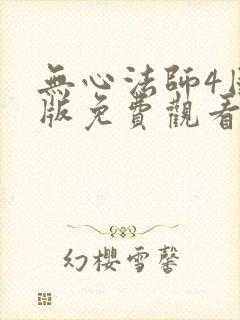 無心法師4
版免費觀看
幻櫻雪馨